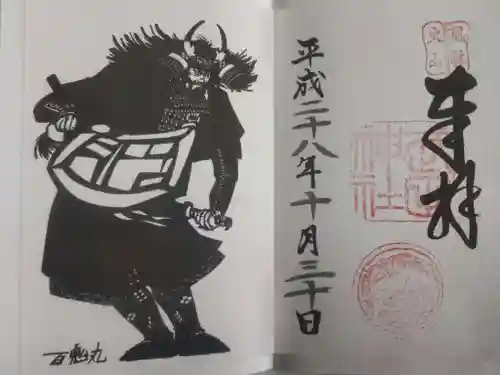 風林
火山
奉拝
神社
平成二十八年十月三十日
百鬼丸